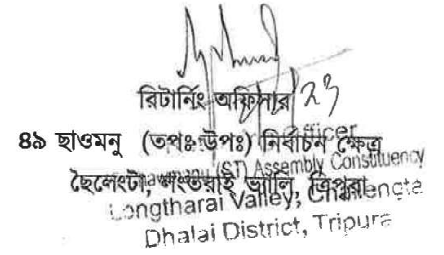 রিটার্নিং অফিসার
23
৪৯ ছাওমনু (তপঃ উপঃ) নির্বাচন ক্ষেত্র
ছৈলেংটা, লংতরাই ভ্যালি, ত্রিপুরা
Officer
(ST) Assembly Constituency
Longtharai Valley, Chailengta
Dhalai District, Tripura